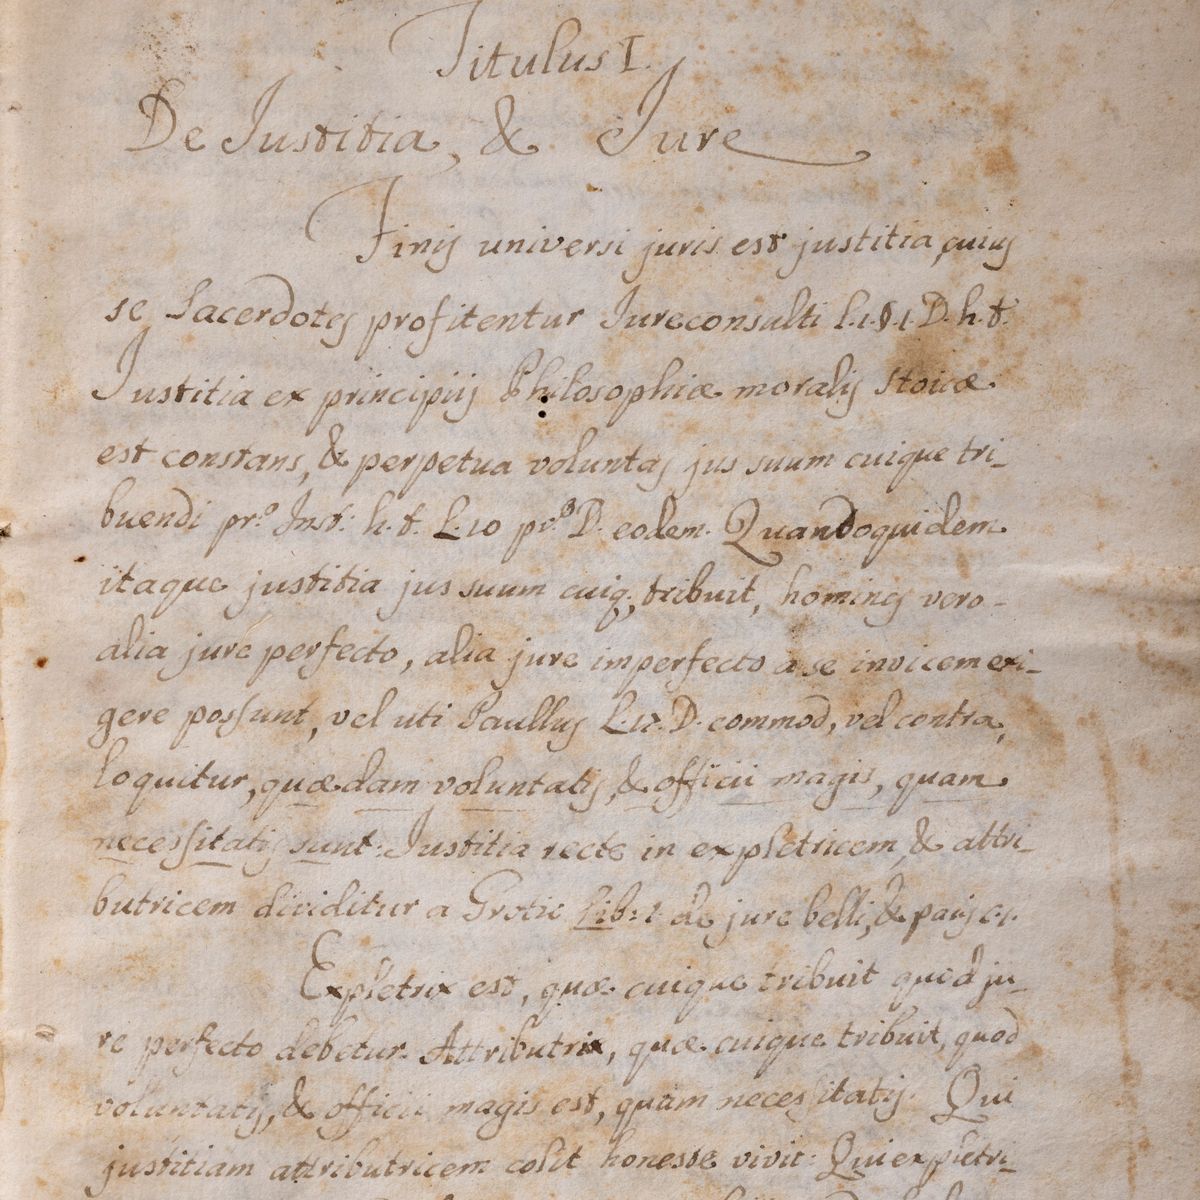 Titulus I.
De Justitia, & Jure
Finis universi juris est justitia, cuius
se Sacerdotes profitentur Jureconsulti l. 1. § 1. D. h. t.
Justitia ex principiis Philosophiæ moralis Stoicæ
est constans, & perpetua voluntas jus suum cuique tri-
buendi pr.º Inst: h. t. L. 10 pr.º D. eodem. Quandoquidem
itaque justitia jus suum cuiq; tribuit, homines vero
alia jure perfecto, alia jure imperfecto a se invicem exi-
gere possunt, vel uti Paullus L. 17. D. commod, vel contra,
loquitur, quædam voluntatis, & officii magis, quam
necessitatis sunt: Justitia recte in expletricem, & attri-
butricem dividitur a Grotio Lib: 1. de jure belli, & pacis c. 1.
Expletrix est, quæ cuique tribuit quod ju-
re perfecto debetur. Attributrix, quæ cuique tribuit, quod
voluntatis, & officii magis est, quam necessitatis. Qui
justitiam attributricem colit honeste vivit: Qui expletri-